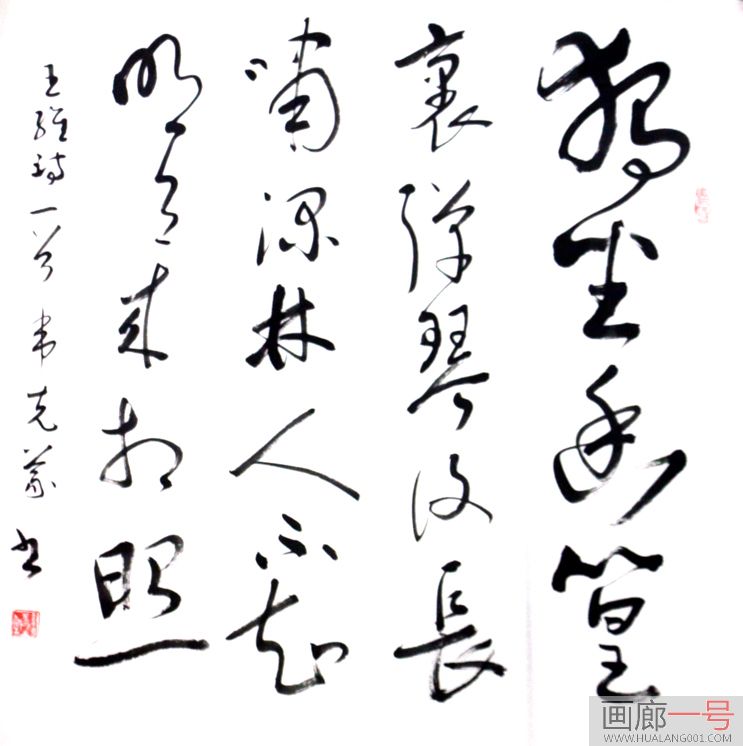 独坐幽篁
裏弹琴復長
啸深林人不知
明月来相照
王维诗一首 韦克义书
画廊一号
WWW.HUALANG001.COM